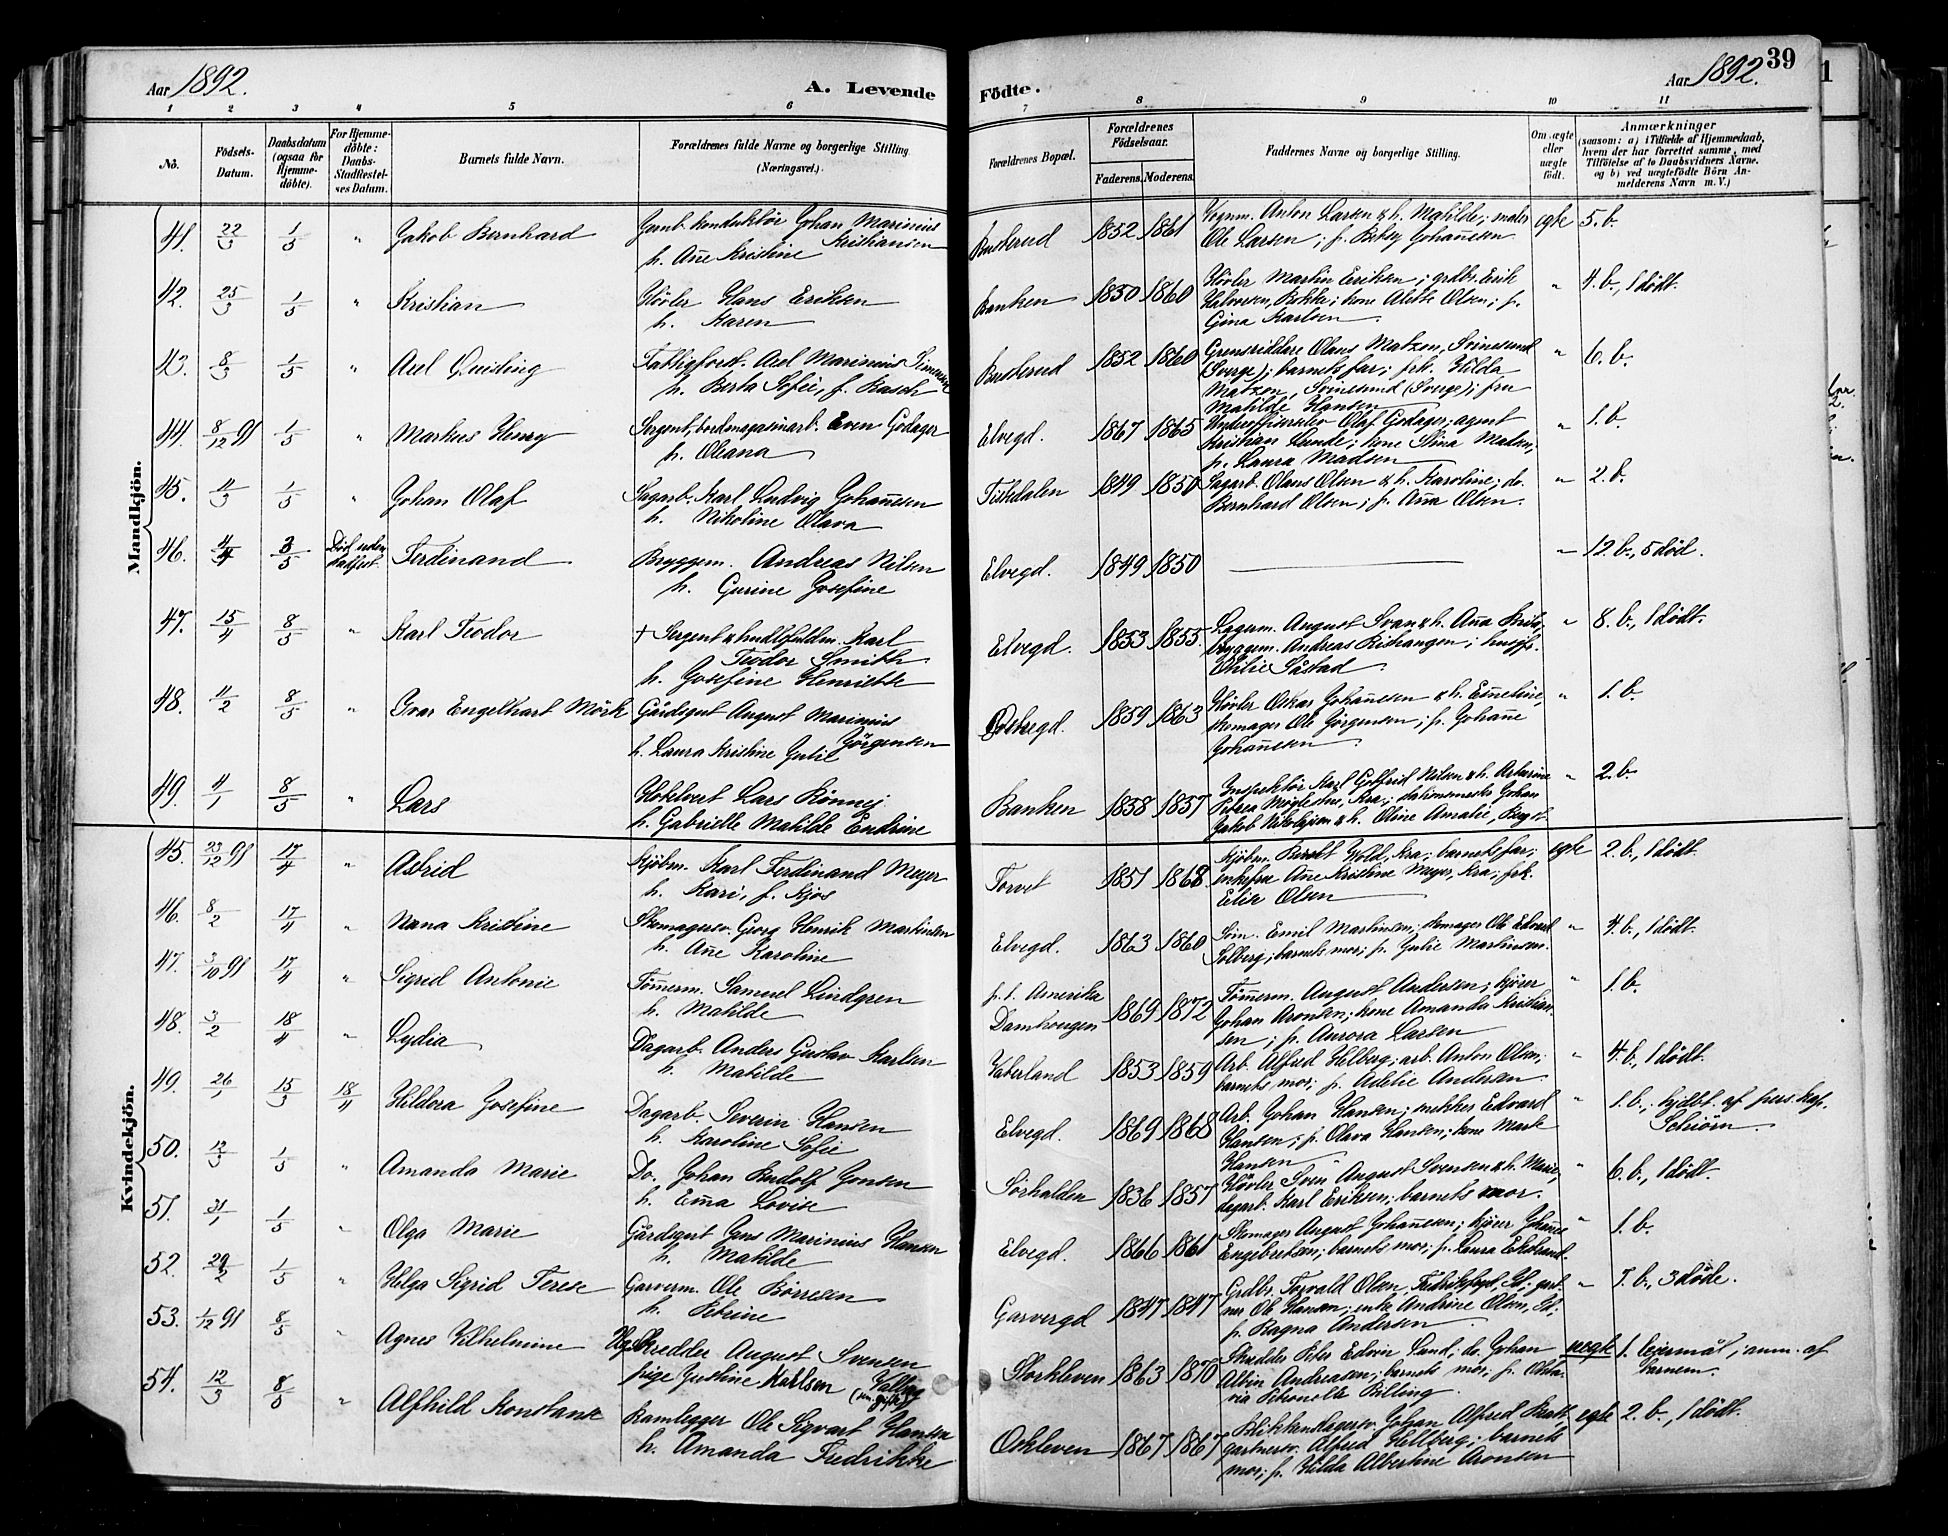 Aar 1892.
A. Levende
Födte.
Aar 1892. 39
1 2 3 4 5 6 7 8 9 10 11
No.
Födsels-Datum.
Daabsdatum (ogsaa for Hjemme-döbte).
For Hjemme-döbte: Daabs-Stadfæstel-ses Datum.
Barnets fulde Navn.
Forældrenes fulde Navne og borgerlige Stilling
(Næringsvei.)
Forældrenes Bopæl.
Forældrenes Födselsaar.
Faderens. Moderens.
Faddernes Navne og borgerlige Stilling.
Om ægte eller uægte födt.
Anmærkninger
(saasom: a) i Tilfælde af Hjemmedaab,
hvem der har forrettet samme, med
Tilföielse af to Daabsvidners Navne.
og b) ved uægtefödte Börn An-
melderens Navn m. V.)
Mandkjön.
41. 22/3 1/5 " Jakob Bernhard
Jernb. konduktör Johan Marinius
Kristiansen
h. Ane Kristine
Busterud 1852 1861
Vognm. Anton Larsen & h. Matilde; maler
Ole Larsen; p. Betsy Johanesen
egte 5. b.
42. 25/3 1/5 " Kristian
Hövler Hans Eriksen
h. Karen
Banken 1850 1860
Hövler Martin Eriksen; grdbr. Erik
Halvorsen, Bekke; kone Alette Olsen; p.
Gina Karlsen
" 4. b., 1 dödt.
43. 8/3 1/5 " Axel Quisling
Fattigforst. Axel Marinius
h. Berta Sofie, f. Rasch
Busterud 1852 1860
Grensriddare Olaus Matzon, Svinesund
(Sverge); barnets far; frk. Hilda
Matzon, Svinesund (Sverge); fru
Matilde Hansen
" 6. b.
44. 8/12 91 1/5 " Markus Henry
Sergent, bordmagasinarb. Even Godager
h. Oleana
Elvegd. 1867 1865
Olaf Godager; agent
Kristian Lunde; kone Stina Madsen;
p. Laura Madsen
" 1. b.
45. 4/3 1/5 " Johan Olaf
Sagarb. Karl Ludvig Johanesen
h. Nikoline Olava
Tistedalen 1849 1850
Sagarb. Olaus Olsen & h. Karoline; do.
Bernhard Olsen; p. Ana Olsen.
" 2. b.
46. 4/4 3/5 Död uden stadfest. Ferdinand
Bryggem. Andreas Nilsen
h. Gurine Josefine
Elvegd. 1849 1850
" 12. b., 5 död.
47. 15/4 8/5 " Karl Teodor
+ Sergent & hndlsfuldm. Karl
Teodor Smith
h. Josefine Henriette
Elvegd. 1853 1855.
Lagerm. August Svan & h. Ana
bryggem. Andreas Kishangen; husjfr.
Othilie Såstad
" 8. b., 1 dödt.
48. 11/2 8/5 " Ivar Engelhart Mörk
Gårdsgut August Marinius
Jörgensen
h. Laura Kristine Julie
Ostregd. 1859 1863
Hövler Oskar Johanesen & h. Emeline,
skomager Ole Jörgensen; p. Johane
Johanesen
" 1. b.
49. 4/1 8/5 " Lars
Hotelvert Lars Rönnej
h. Gabrielle Matilde Endrine
Banken 1858 1857
Inspektör Karl Gotfrid Nilsen & h.
Petrea Möglestue, Kra.; stationsmester Johan
Jakob Nikolajsen & h. Oline Amalie,
" 2. b.
Kvindekjön.
45. 23/12 91 17/4 " Astrid
Kjöbm. Karl Ferdinand Meyer
h. Kari, f. Kjos
Torvet 1851 1868.
Kjöbm. Berent Wold, Kra; barnets far;
enkefru Ane Kristine Meyer, Kra; frk.
Elise Olsen
egte 2. b., 1 dödt.
46. 8/2 17/4 " Nana Kristine
Skomagersv. Georg Henrik Martinsen
h. Ane Karoline
Elvegd. 1863 1860
Söm. Emil Martinsen; skomager Ole Edvard
Solberg; barnets mor; p. Julie Martinsen.
" 4. b., 1 dödt.
47. 3/10 91 17/4 " Sigrid Antonie
Tömerm. Samuel Lindgren
h. Matilde
p. t. Amerika
Damhaugen 1869 1872
Tömerm. August Andersen; kjörer
Johan Aronsen; kone Amanda Kristian-
sen; p. Aurora Larsen
" 1. b.
48. 3/2 18/4 " Lydia
Dagarb. Anders Gustav Karlsen
h. Matilde
Vaterland 1853 1859
Arb. Alfred Hilberg; arb. Anton Olsen;
barnets mor; p. Adelie Andersen
" 4. b., 1 dödt.
49. 26/1 15/3 18/4 Hildora Josefine
Dagarb. Severin Hansen
h. Karoline Sofie
Elvegd. 1869 1868
Arb. Johan Hansen; mekker Edvard
Hansen; p. Olava Hansen; kone
Hansen
" 1. b.; hjdbt. af pers. kap.
Schiörn
50. 12/3 1/5 " Amanda Marie
Do. Johan Rudolf Jonsen
h. Ema Lovise
Sörhalden 1856 1857
Hövler Sven August Svensen & h. Marie;
dagarb. Karl Eriksen; barnets mor.
" 6. b., 1 dödt.
51. 31/1 1/5 " Olga Marie
Gårdsgut Jens Marinius Hansen
h. Matilde
Elvegd. 1866 1861
Skomager August Johanesen; kjörer Johanes
Engebretsen; barnets mor; p. Laura Ekstrand.
" 1. b.
52. 29/2 1/5 " Helga Sigrid Terese
Garverm. Ole Börresen
h. Petrine
Garvergd 1847 1847
Grdbr. Torvald Olsen, Id; gart-
ner Ole Hansen; enke Andrine Olsen, Id.
p. Ragna Andersen
" 7. b., 3 döde.
53. 1/12 91 8/5 " Agnes Vilhelmine
Skredder August Svensen
pige Justine Karlsen
Storkleven 1863 1870
Skredder Peter Edvin Lund; do. Johan
Albin Andreasen; barnets mor; p. Okta-
via Petronelle Billing
uegte 1. leiermål; anm. af
barnem.
54. 12/3 8/5 " Alfhild Konstanse
Ramlegger Ole Sigvart Hansen
h. Amanda Fredrikke
Oskleven 1867 1867
Blikkenslagersv. Johan Alfred Kratt,
gartnersv. Alfred Hellberg; barnets
mor; p. Hilda Albertine Aronsen
egte 2. b., 1 dödt.